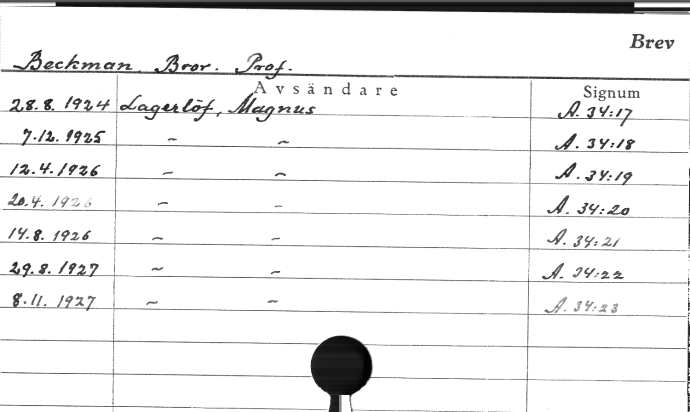 Brev
Beckman, Bror. Prof.
Avsändare Signum
28.8.1924 Lagerlöf, Magnus A. 34:17
7.12.1925 ~ ~ A. 34:18
12.4.1926 ~ ~ A. 34:19
20.4.1926 ~ ~ A. 34:20
14.8.1926 ~ ~ A. 34:21
29.8.1927 ~ ~ A. 34:22
8.11.1927 ~ ~ A. 34:23